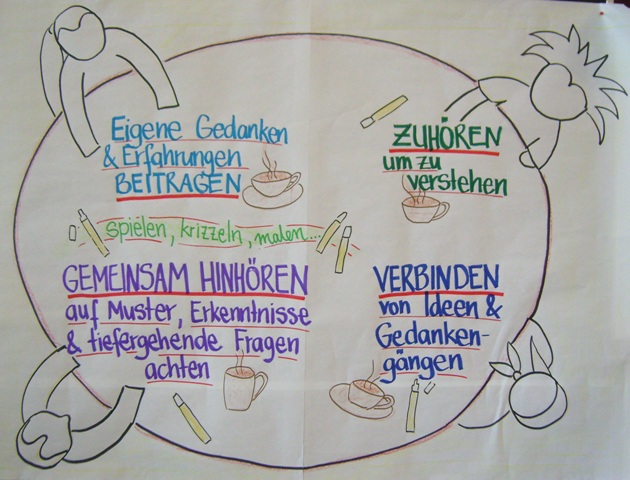 Eigene Gedanken
& Erfahrungen
BEITRAGEN
ZUHÖREN
um zu
verstehen
spielen, krizzeln, malen...
GEMEINSAM HINHÖREN
auf Muster, Erkenntnisse
& tiefergehende Fragen
achten
VERBINDEN
von Ideen &
Gedanken-
gängen